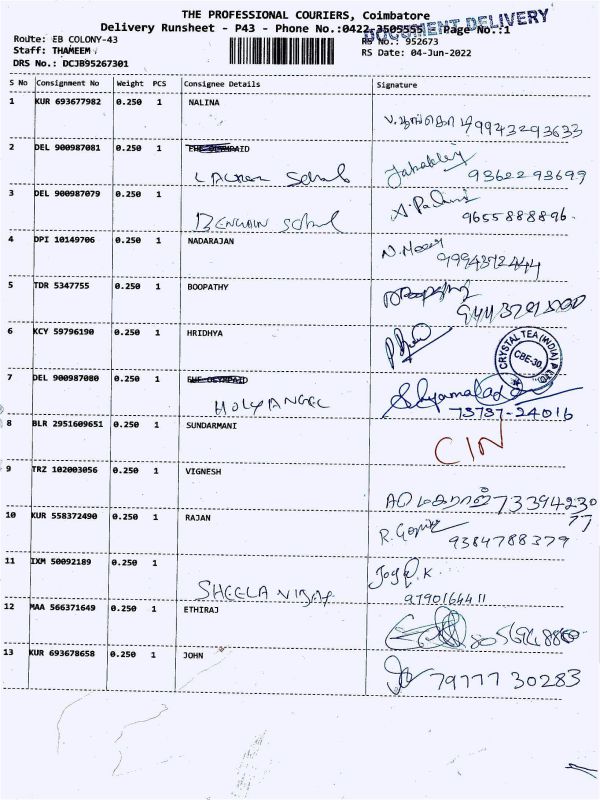 THE PROFESSIONAL COURIERS, Coimbatore
Delivery Runsheet - P43 - Phone No.:0422-3505555 Page No.:1
DOCUMENT DELIVERY
Route: EB COLONY-43
RS No.: 952673
Staff: THAMEEM
RS Date: 04-Jun-2022
DRS No.: DCJB95267301
S No Consignment No Weight PCS Consignee Details Signature
1 KUR 693677982 0.250 1 NALINA
99943293633
2 DEL 900987081 0.250 1
School
93622 93699
3 DEL 900987079 0.250 1
School
9655888896.
4 DPI 10149706 0.250 1 NADARAJAN
9994372444
5 TDR 5347755 0.250 1 BOOPATHY
6 KCY 59796190 0.250 1 HRIDHYA
CRYSTAL TEA (INDIA) P LTD.
CBE-30.
7 DEL 900987080 0.250 1
HOLY ANGEL
73737-24016
8 BLR 2951609651 0.250 1 SUNDARMANI
CIN
9 TRZ 102003056 0.250 1 VIGNESH
73394230
77
10 KUR 558372490 0.250 1 RAJAN
R. Gopi
9384788379
11 IXM 50092189 0.250 1
SHEELA
9790164411
12 MAA 566371649 0.250 1 ETHIRAJ
13 KUR 693678658 0.250 1 JOHN
79777 30283